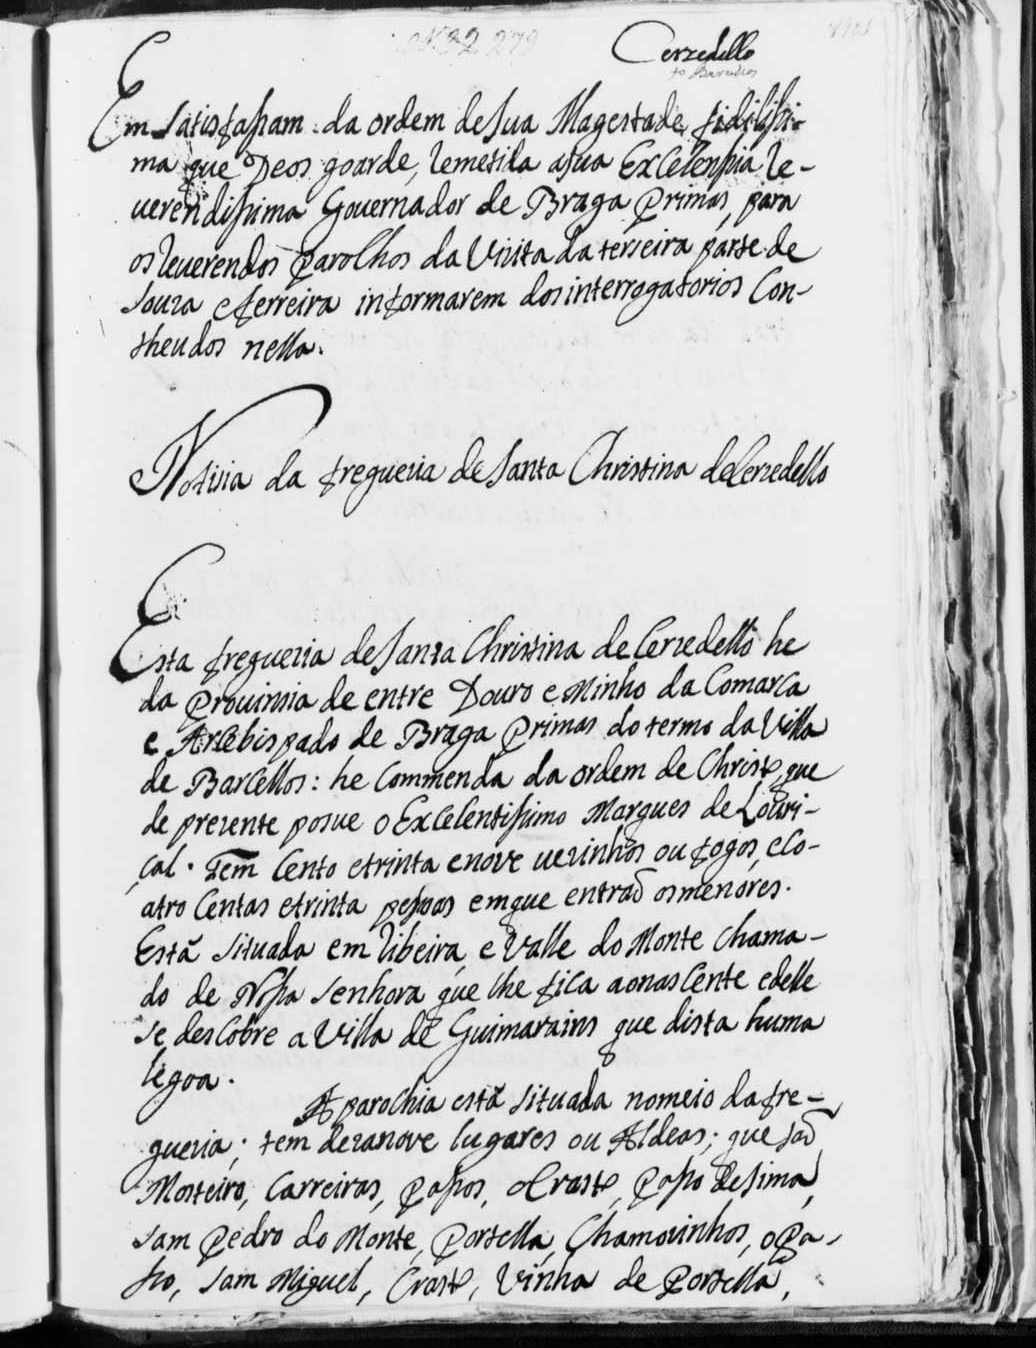 Cerzedello
Em satisfasam da ordem de sua Magestade fidilissi-
ma que Deos goarde, remetida a sua Excelensia Re-
uerendissima Gouernador de Braga Primas, para
os Reuerendos Parolhos da Vizita da terseira parte de
souza e ferreira informarem dos interrogatorios Con-
theudos nella.
Notisia da freguezia de Santa Christina de Cerzedello
Esta freguezia de Santa Christina de Cerzedello he
da Prouinsia de entre Douro e Minho da Comarca
e Arcebispado de Braga Primas do termo da Villa
de Barcellos: he Commenda da ordem de Christo, que
de prezente posue o Excelentissimo Marques de Louri-
çal. Tem Cento e trinta e nove uezinhos ou fogos, e Co-
atro Centas e trinta pesoas em que entraõ os menores.
Está situada em Ribeira, e Valle do Monte chama-
do de Nosa senhora que lhe fica ao nascente e delle
se descobre a Villa de Guimarains que dista huma
legoa.
A parochia está situada no meio da fre-
guezia; tem dezanove lugares ou Aldeas; que saõ
Mosteiro, Carreiras, Pasos, o Crasto, Paso de sima,
sam Pedro do Monte, Portella, Chamosinhos, o Pa-
so, sam Miguel, Crasto, Vinha de Portella,